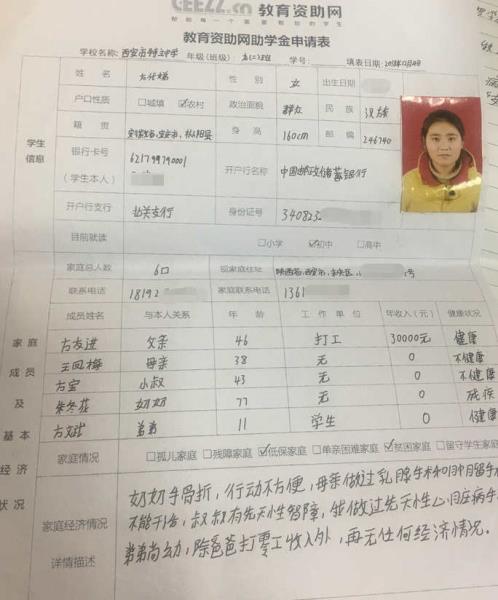 GEEZZ.cn 教育资助网
教育资助网助学金申请表
学校名称: 西安市 中学 年级(班级): 学号: 填表日期:
姓 名 性 别 女 出生日期
户口性质 □城镇 ☑农村 政治面貌 群众 民 族 汉族
籍 贯 身 高 160cm 邮 编 246740
学生信息
银行卡号 621799790001 开户行名称 中国邮政储蓄银行
(学生本人)
开户行支行 北关支行 身份证号 340823
目前就读 □小学 ☑初中 □高中
家庭总人数 6口 现家庭住址 陕西省,西安市, 号
联系电话 18192 家庭联系电话 1361
成员姓名 与本人关系 年 龄 工 作 单 位 年收入(元) 健康状况
家庭成员及基本经济状况
方友进 父亲 46 打工 30000元 健康
王凤梅 母亲 38 无 0 不健康
方宝 小叔 43 无 0 不健康
朱冬花 奶奶 77 无 0 残疾
弟弟 11 学生 0 健康
家庭情况 □孤儿家庭 □残障家庭 ☑低保家庭 □单亲困难家庭 ☑贫困家庭 □留守学生家庭
家庭经济情况
详情描述
奶奶手骨折,行动不方便,母亲做过乳腺手术和
不能干活,叔叔有先天性智障,我做过先天性心脏病手
弟弟尚幼,除爸爸打零工收入外,再无任何经济情况。